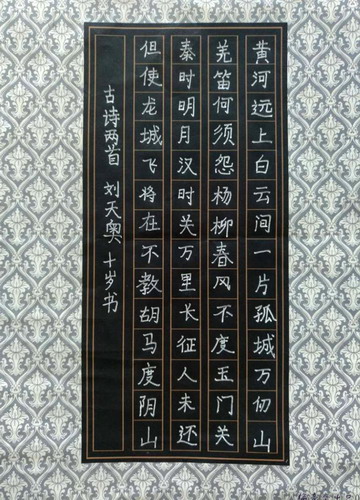 黄河远上白云间一片孤城万仞山
羌笛何须怨杨柳春风不度玉门关
秦时明月汉时关万里长征人未还
但使龙城飞将在不教胡马度阴山
古诗两首 刘天奥 十岁书